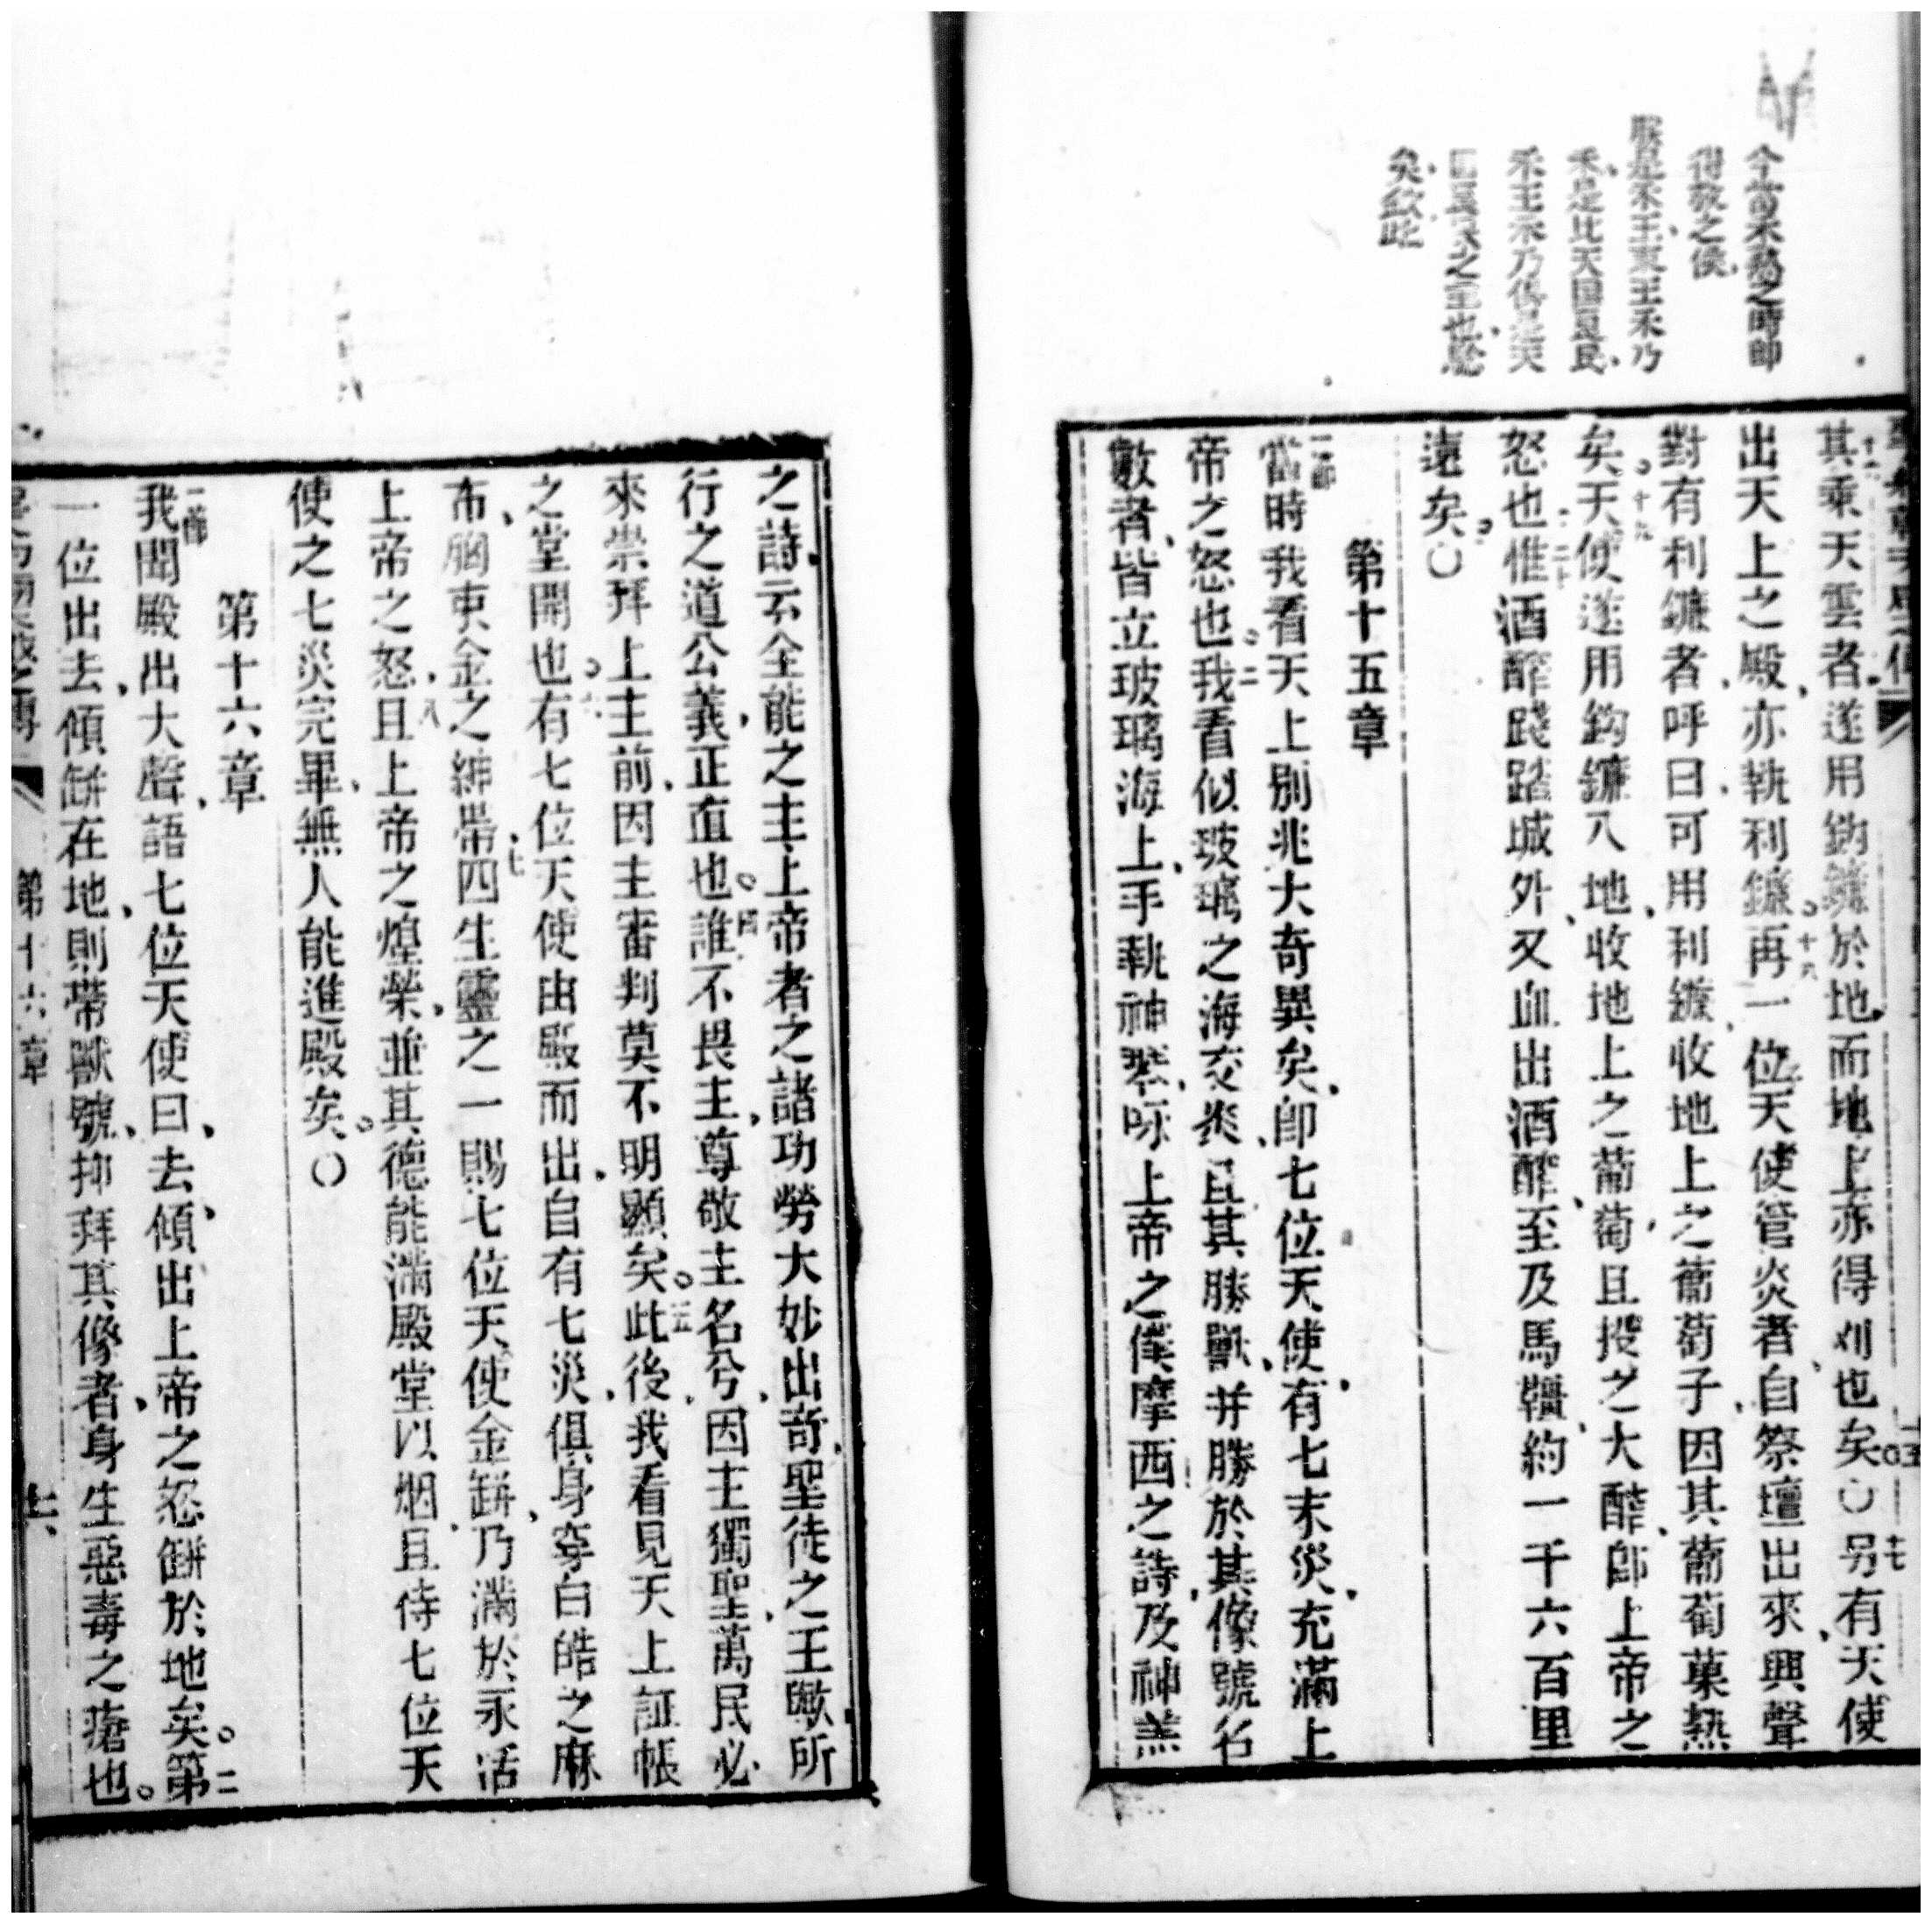 今當禾熟之時即
得救之候
朕是禾王東王禾乃
禾是比天国良民
禾王禾乃俱是天
国良民之主也驗
矣欽此
其乘天雲者遂用鈎鐮於地而地上亦得刈也矣○十七另有天使
出天上之殿亦執利鐮十八再一位天使管炎者自祭壇出來興聲
對有利鐮者呼曰可用利鐮收地上之葡萄子因其葡萄菓熱
矣十九天使遂用鈎鐮入地收地上之葡萄且投之大醡即上帝之
怒也二十惟酒醡踐踏城外又血出酒醡至及馬韁約一千六百里
遠矣○
第十五章
一節當時我看天上別兆大奇異矣即七位天使有七末災充滿上
帝之怒也二我看似玻璃之海交炎且其勝獸并勝於其像號名
數者皆立玻璃海上手執神琴咏上帝之僕摩西之詩及神羔
之詩云全能之主上帝者之諸功勞大妙出奇聖徒之王歟所
行之道公義正直也四誰不畏主尊敬主名兮因主獨聖萬民必
來崇拜上主前因主審判莫不明顯矣五此後我看見天上証帳
之堂開也六有七位天使由殿而出自有七災俱身穿白皓之麻
布胸束金之紳帶七四生靈之一賜七位天使金缾乃滿於永活
上帝之怒八且上帝之煌榮並其德能滿殿堂以烟且待七位天
使之七災完畢無人能進殿矣○
第十六章
一節我聞殿出大聲語七位天使曰去傾出上帝之怒缾於地矣二第
一位出去傾缾在地則帶獸號抑拜其像者身生惡毒之瘡也
第十六章